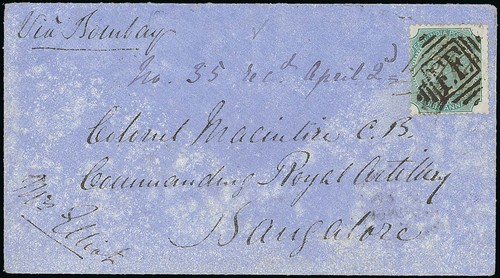 Via Bombay
No. 35 recd April 2
Colonel Macintire C.B.
Commanding Royal Artillery
Bangalore
Mrs Elliot